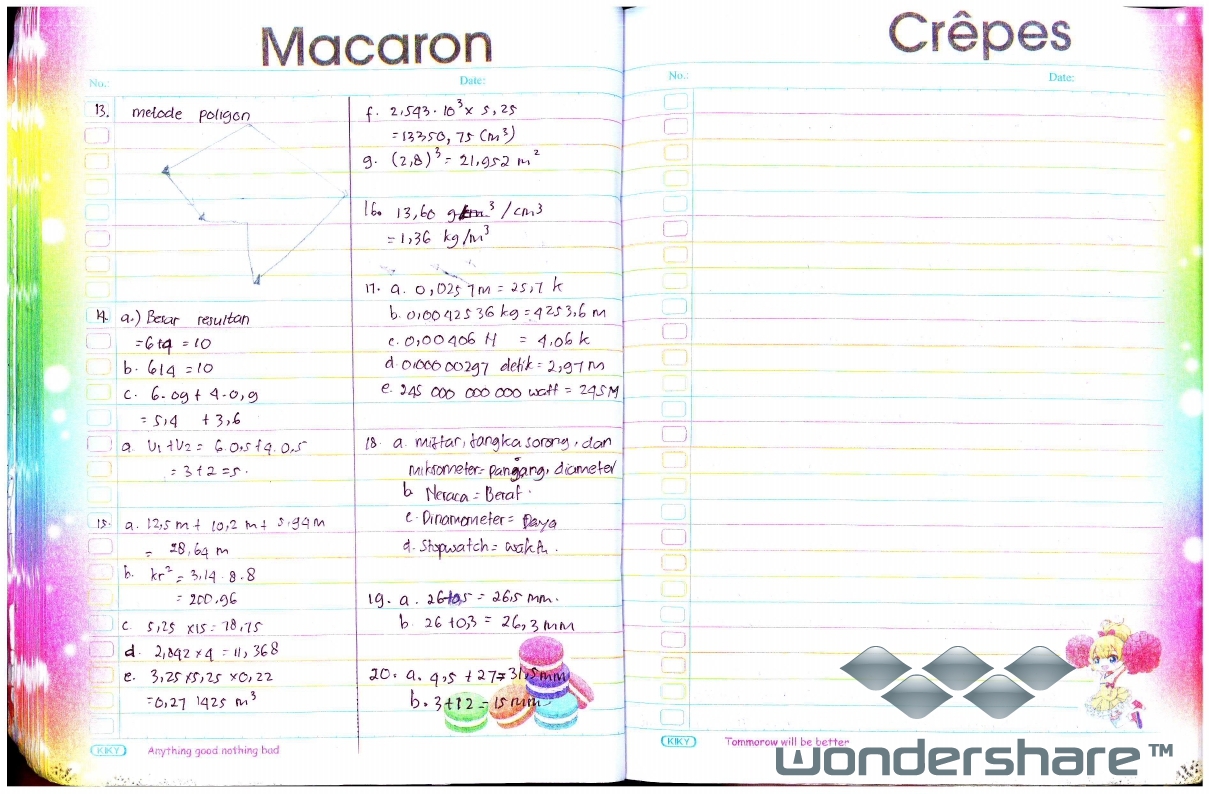 Macaron
No.:
Date:
13. metode poligon
14. a.) Besar resultan
= 6+4 = 10
b. 6+4 = 10
c. 6. 0,9 + 4. 0,9
= 5,4 + 3,6
a. V1 + V2 = 6. 0,5 + 4. 0,5
= 3 + 2 = 5.
15. a. 12,5 m + 10,2 m + 5,94 m
= 28,64 m
b. kr² = 3,14 . 8 . 8
= 200,96
c. 5,25 x 15 = 78,75
d. 2,842 x 4 = 11,368
e. 3,25 x 5,25 x 0,22
= 0,27 1425 m³
KIKY
Anything good nothing bad
f. 2,543 . 10³ x 5,25
= 13350,75 (m³)
g. (2,8)³ = 21,952 m²
16. 13,60 g /cm3
= 1,36 kg/m³
17. a. 0,0257 m = 25,7 k
b. 0,0042536 kg = 4253,6 m
c. 0,00406 H = 4,06 k
d. 0,00000297 detik = 2,97 m
e. 245 000 000 000 watt = 245 M
18. a. mistar, jangka sorong, dan
mikrometer = panjang, diameter
b Neraca = Berat.
c. Dinamometer = Daya
d. Stopwatch = waktu.
19. a. 26+0,5 = 26,5 mm.
b. 26 + 0,3 = 26,3 mm
20. a. 4,5 + 27 = 31,5 mm
b. 3+12 = 15 mm
Crêpes
No.:
Date:
KIKY
Tommorow will be better
wondershare™